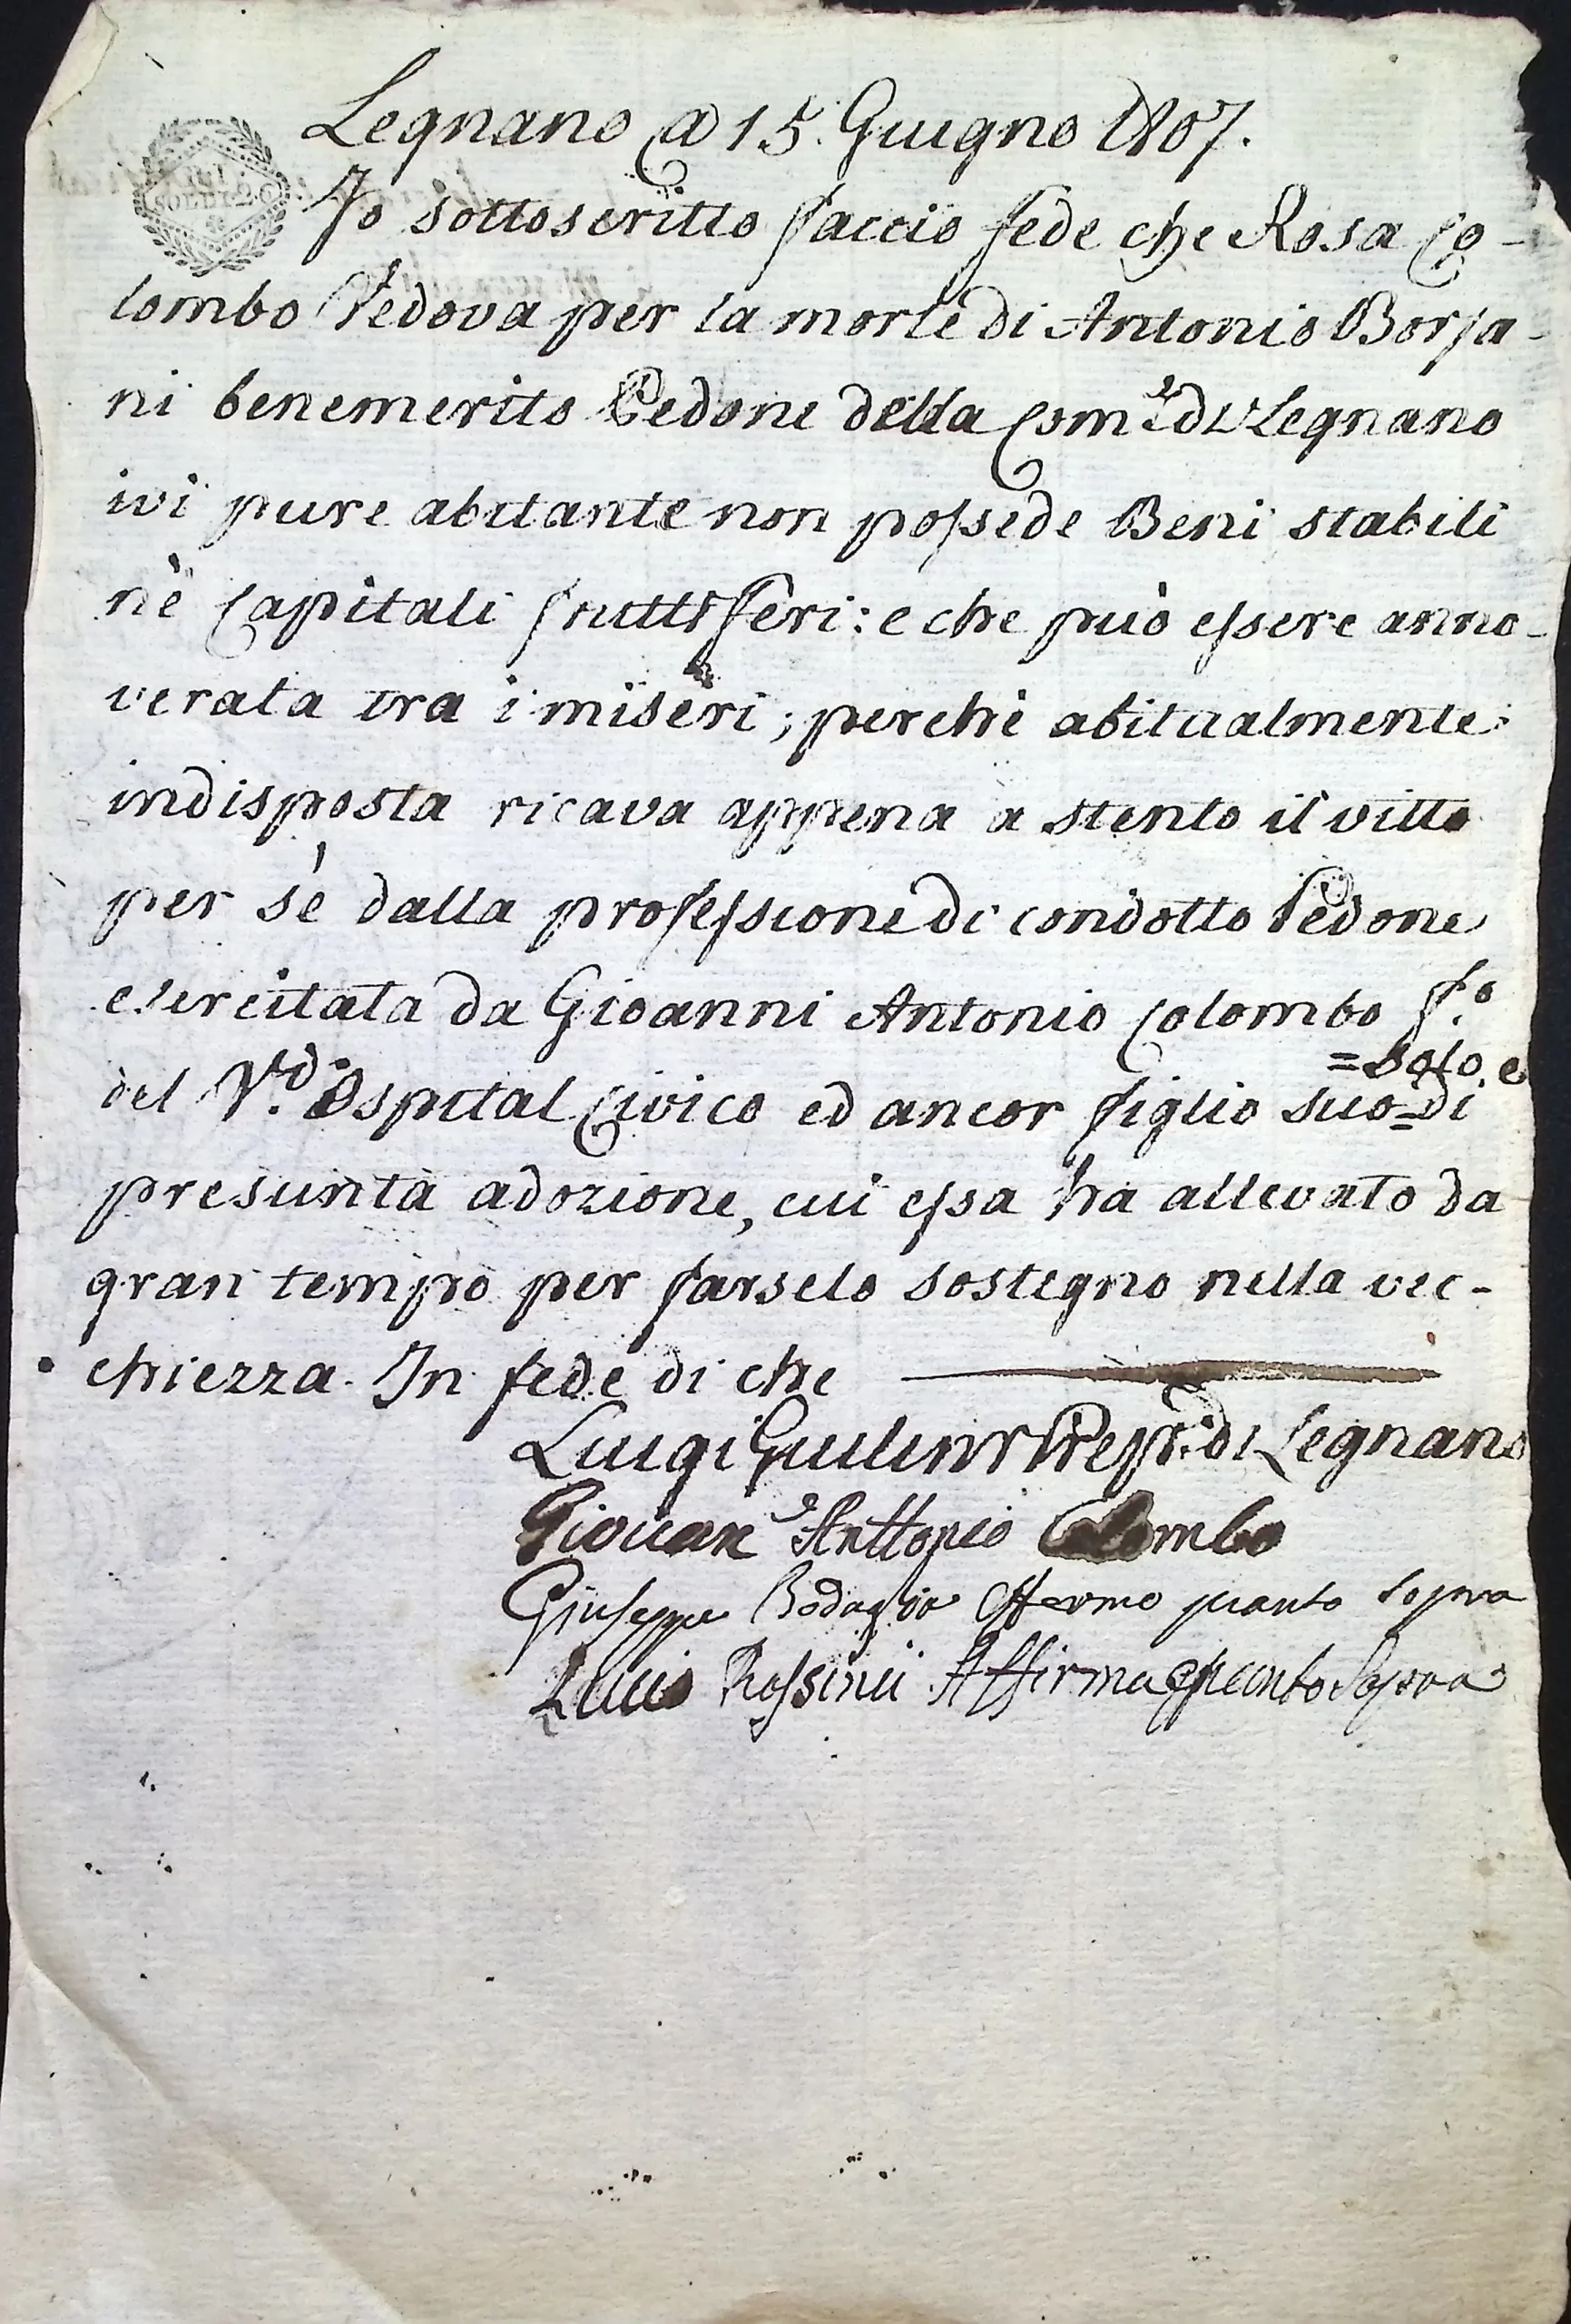 Legnano a 15. Giugno 1807.
SOLDI 2
Io sottoscritto faccio fede che Rosa Co-
lombo Vedova per la morte di Antonio Borsa-
ni benemerito Pedone della Com.e di Legnano
ivi pure abitante non possede Beni stabili
nè Capitali fruttiferi: e che può essere anno-
verata tra i miseri; perchè abitualmente
indisposta ricava appena a stento il vitto
per sè dalla professione di condotto Pedone
esercitata da Gioanni Antonio Colombo f.o
del V.do Ospital Civico ed ancor figlio suo = solo, e = di
presunta adozione, cui essa ha allevato da
gran tempo per farselo sostegno nella vec-
chiezza. In fede di che
Luigi di Legnano
Giovan Anttonio Colombo
Giuseppe Affermo quanto sopra
Rossini Affirma quanto Sopra